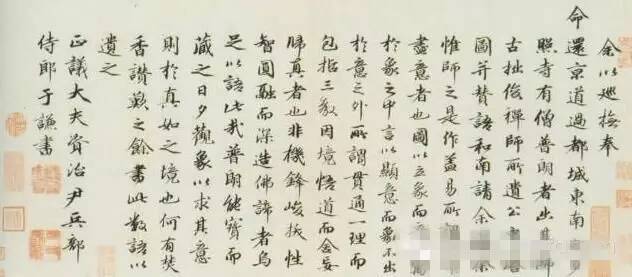 余以巡撫奉
命還京道過都城東南
照寺有僧普朗者出其師
古拙俊禪師所遺公
圖并贊語和南請余
惟師之是作蓋易所
盡意者也圖以立象而
於象之中言以顯意而象不出
於意之外所謂貫通一理而
包括三教因境悟道而舍妄
歸真者也非機鋒峻拔性
智圓融而深造佛諦者烏
足以語此哉普朗能寶而
藏之日夕觀象以求其意
則於真如之境也何有焚
香讚歎之餘書此數語以
遺之
正議大夫資治尹兵部
侍郎于謙書